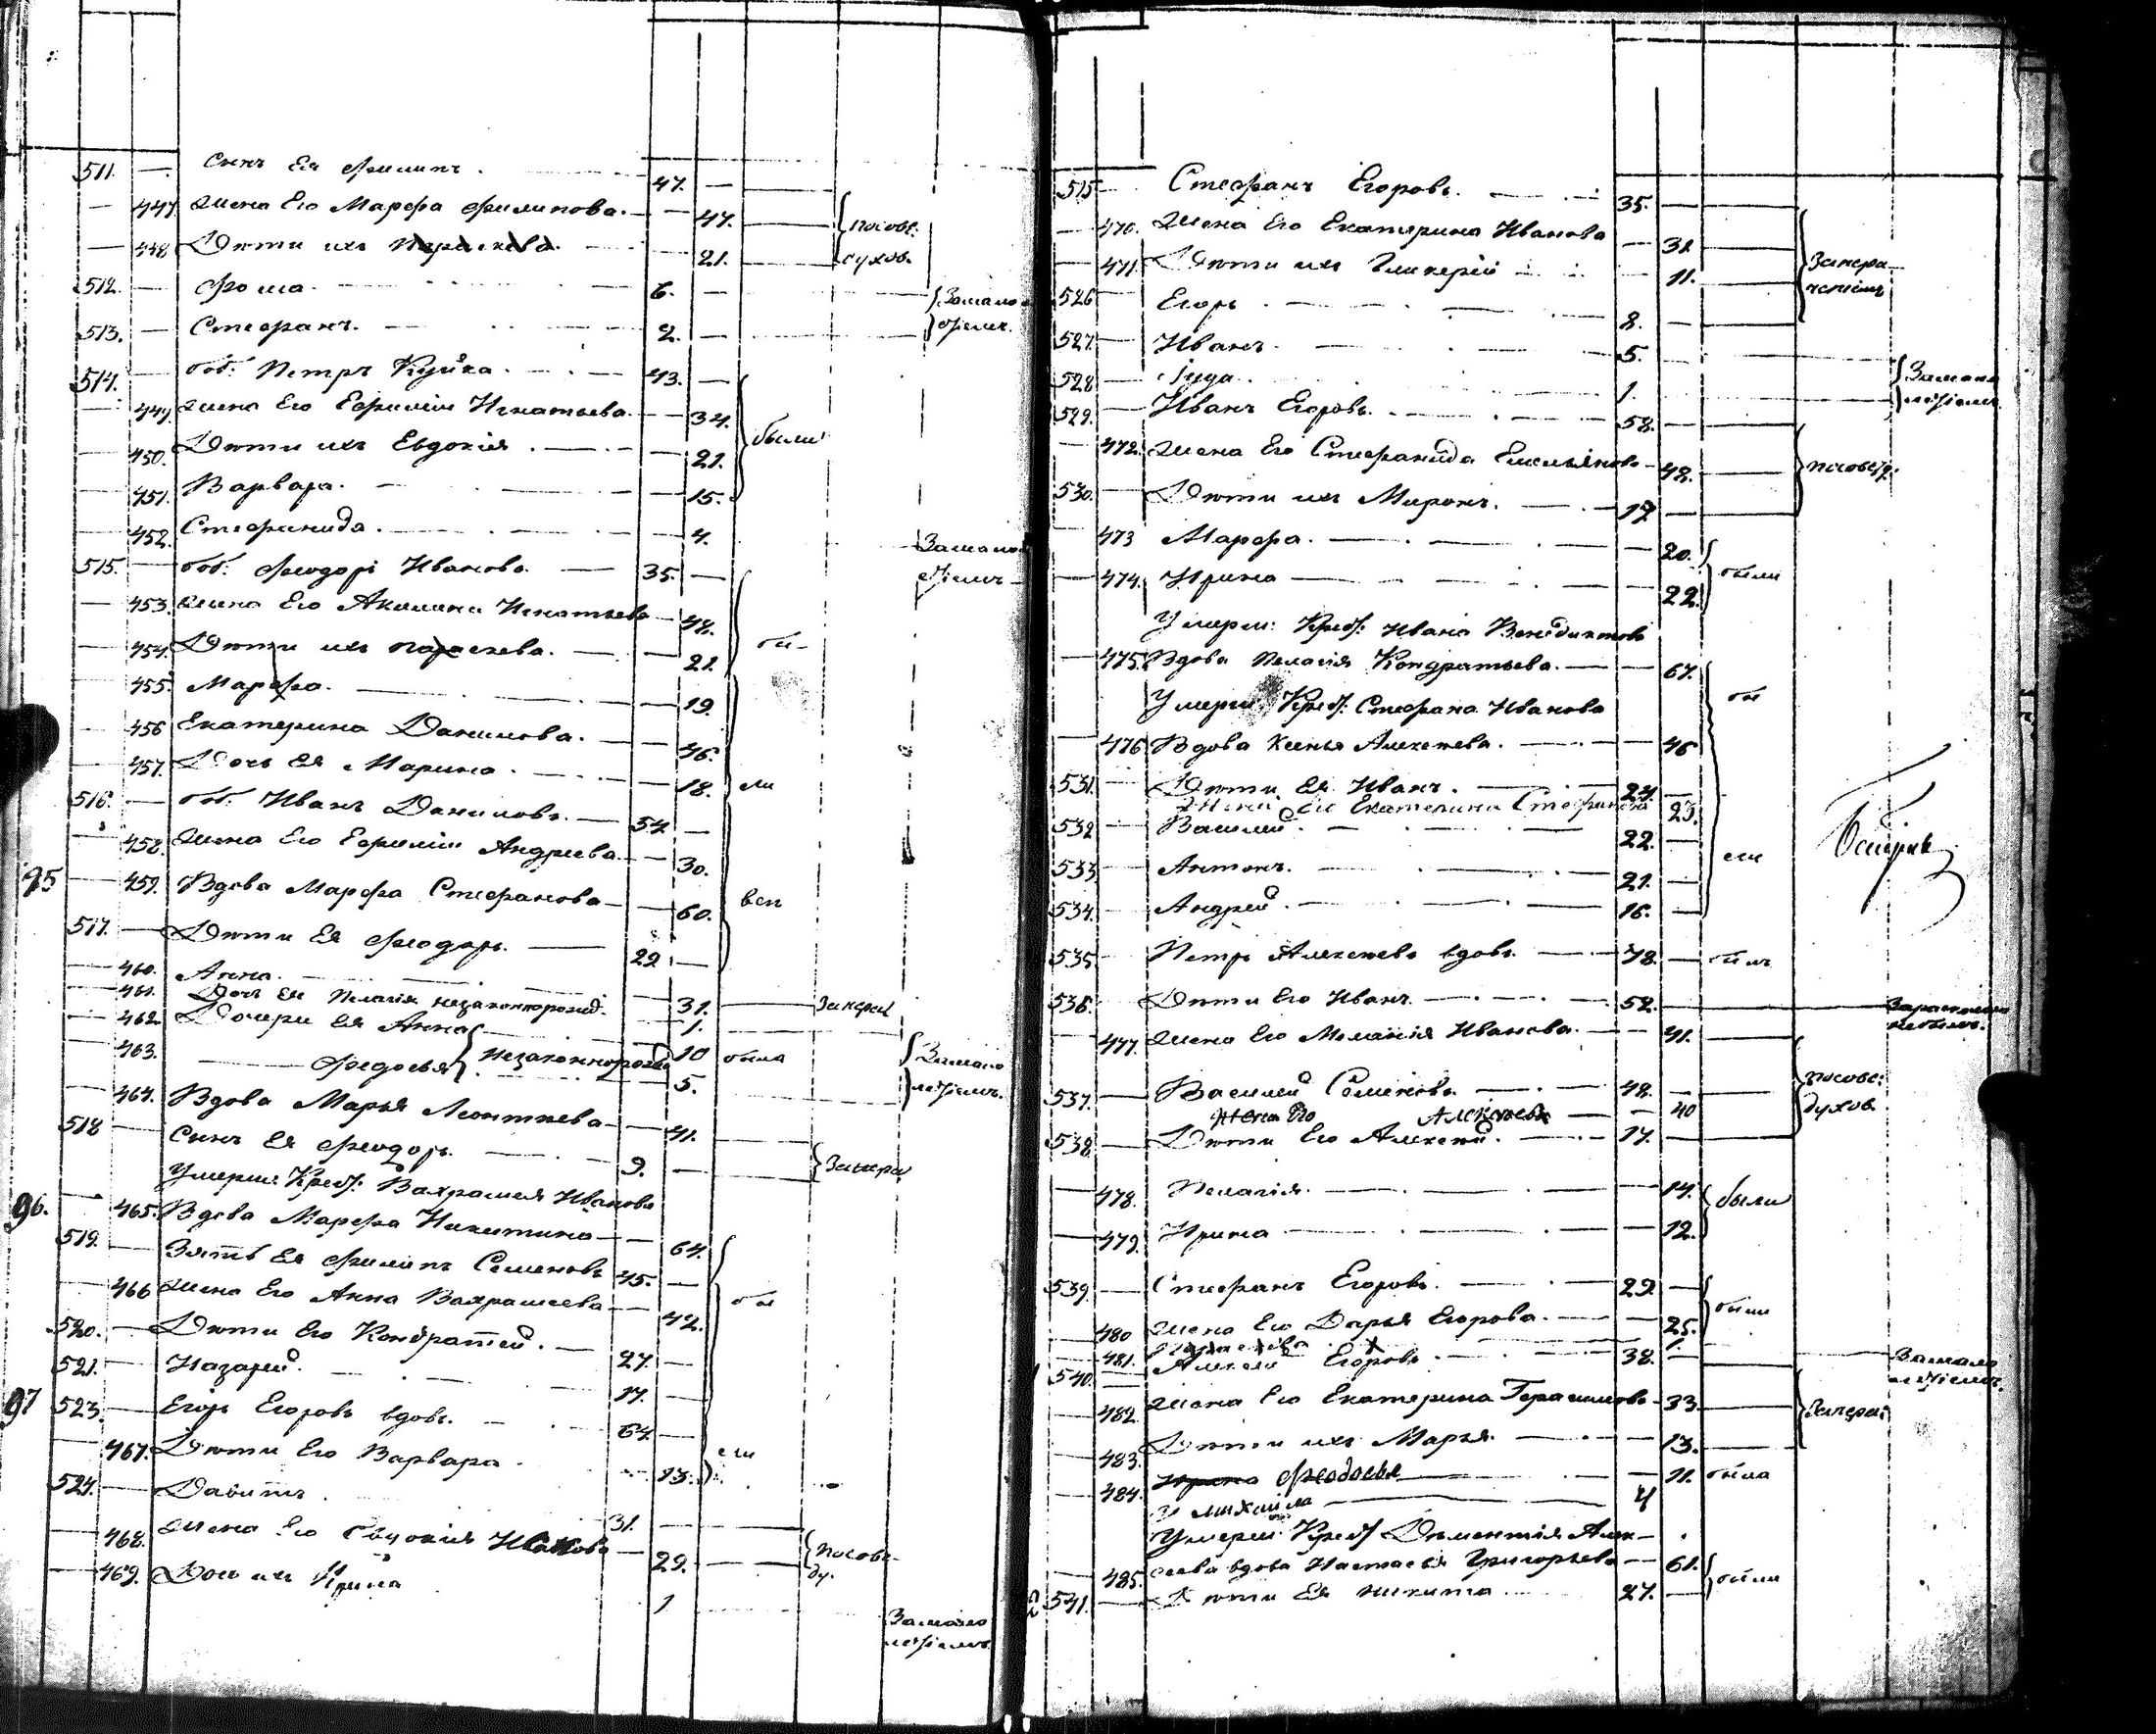 511. Сынъ Ея Филипъ. 47.
447. Жена Его Марфа Филипова. 47. по собс.
448 Дѣти ихъ Параскева 21. духов.
512. Фома. 6. За мало
513. Стефанъ. 2. лѣтiемъ.
514. боб. Петръ Куйка. 43.
449. Жена Его Ефимiя Игнатьева. 34. были
450. Дѣти ихъ Евдокiя. 21.
451. Варвара. 15.
452. Стефанида. 4. За мало
лѣтiемъ
515. боб. Феодоръ Ивановъ 35.
453. Жена Его Акилина Игнатьева 42.
454. Дѣти ихъ Параскева. 21. бы-
455. Марфа. 19.
456 Екатерина Данилова. 46.
457. Дочь Ея Марина. 18. ли
516. боб. Иванъ Даниловъ. 34.
458. Жена Его Ефимiя Андреева 30.
95 459. Вдова Марфа Стефанова 60. вси
517. Дѣти Ея Феодоръ. 29
460. Анна. 31. За нерад
461. Дочь Ея Пелагiя незаконнорожд. 1.
462 Дочери Ея Анна 10 была За мало
463. Федосья незаконнорожд 5. лѣтiемъ.
464. Вдова Марья Леонтьева 41.
518 Сынъ Ея Феодоръ. 9. За нерад
Умерш: Крест: Вахрамея Иванова
96. 465. Вдова Марфа Никитина 64.
519. Зять Ея Филипъ Семеновъ 45.
466 Жена Его Анна Вахрамеева 42. бы
520. Дѣти Его Кондратей. 27.
521. Назарей. 17.
97 523. Егоръ Егоровъ вдовъ. 64.
467. Дѣти Его Варвара 13. ли
524. Давитъ 31.
468. Жена Его Евдокiя Иванова 29. по собс
469. Дочь ихъ Ирина 1 ду.
За мало
лѣтiемъ
515 Стефанъ Егоровъ. 35.
470. Жена Его Екатерина Иванова 31
471. Дѣти ихъ Гликерiя 11. За нера
526 Егоръ 8.ченiемъ
527. Иванъ 5.
528 Iуда. 1. За мало
529. Иванъ Егоровъ. 58. лѣтiемъ
472. Жена Его Стефанида Емельянова 48. по собс д.
530. Дѣти ихъ Миронъ. 17
473 Марфа. 20.
474. Ирина 22. были
Умерш: Крест: Ивана Венедиктова
475. Вдова Пелагiя Кондратьева. 67. бы
Умерш: Крест: Стефана Иванова
476 Вдова Ксенья Алексеева. 46
531. Дѣти Ея Иванъ. 24.
Жена Его Екатерина Стефанова 23.
532 Василей 22.
533 Антонъ. 21. ли
534. Андрей 16.
535 Петръ Алексеевъ вдовъ. 78. былъ
536. Дѣти Его Иванъ 52.
477. Жена Его Меланiя Иванова. 41.
537. Василей Семеновъ 48. по собс:
Жена Его Алексеева 40 духов.
538. Дѣти Его Алексей. 17.
478. Пелагiя. 14. были
479. Ирина 12.
539. Стефанъ Егоровъ. 29.
480 Жена Его Дарья Егорова. 25. были
481. Параскева 1. За мало
540. Алексей Егоровъ 38. лѣтiемъ.
482. Жена Его Екатерина Герасимова 33 За нерад
483. Дѣти ихъ Марья. 13.
484. Ирина Феодосья 11. была
4
Умерш: Крест Дементiя Алек-
485. сеева вдова Настасья Григорьева 61. были
541. Дѣти Ея Никита 27.